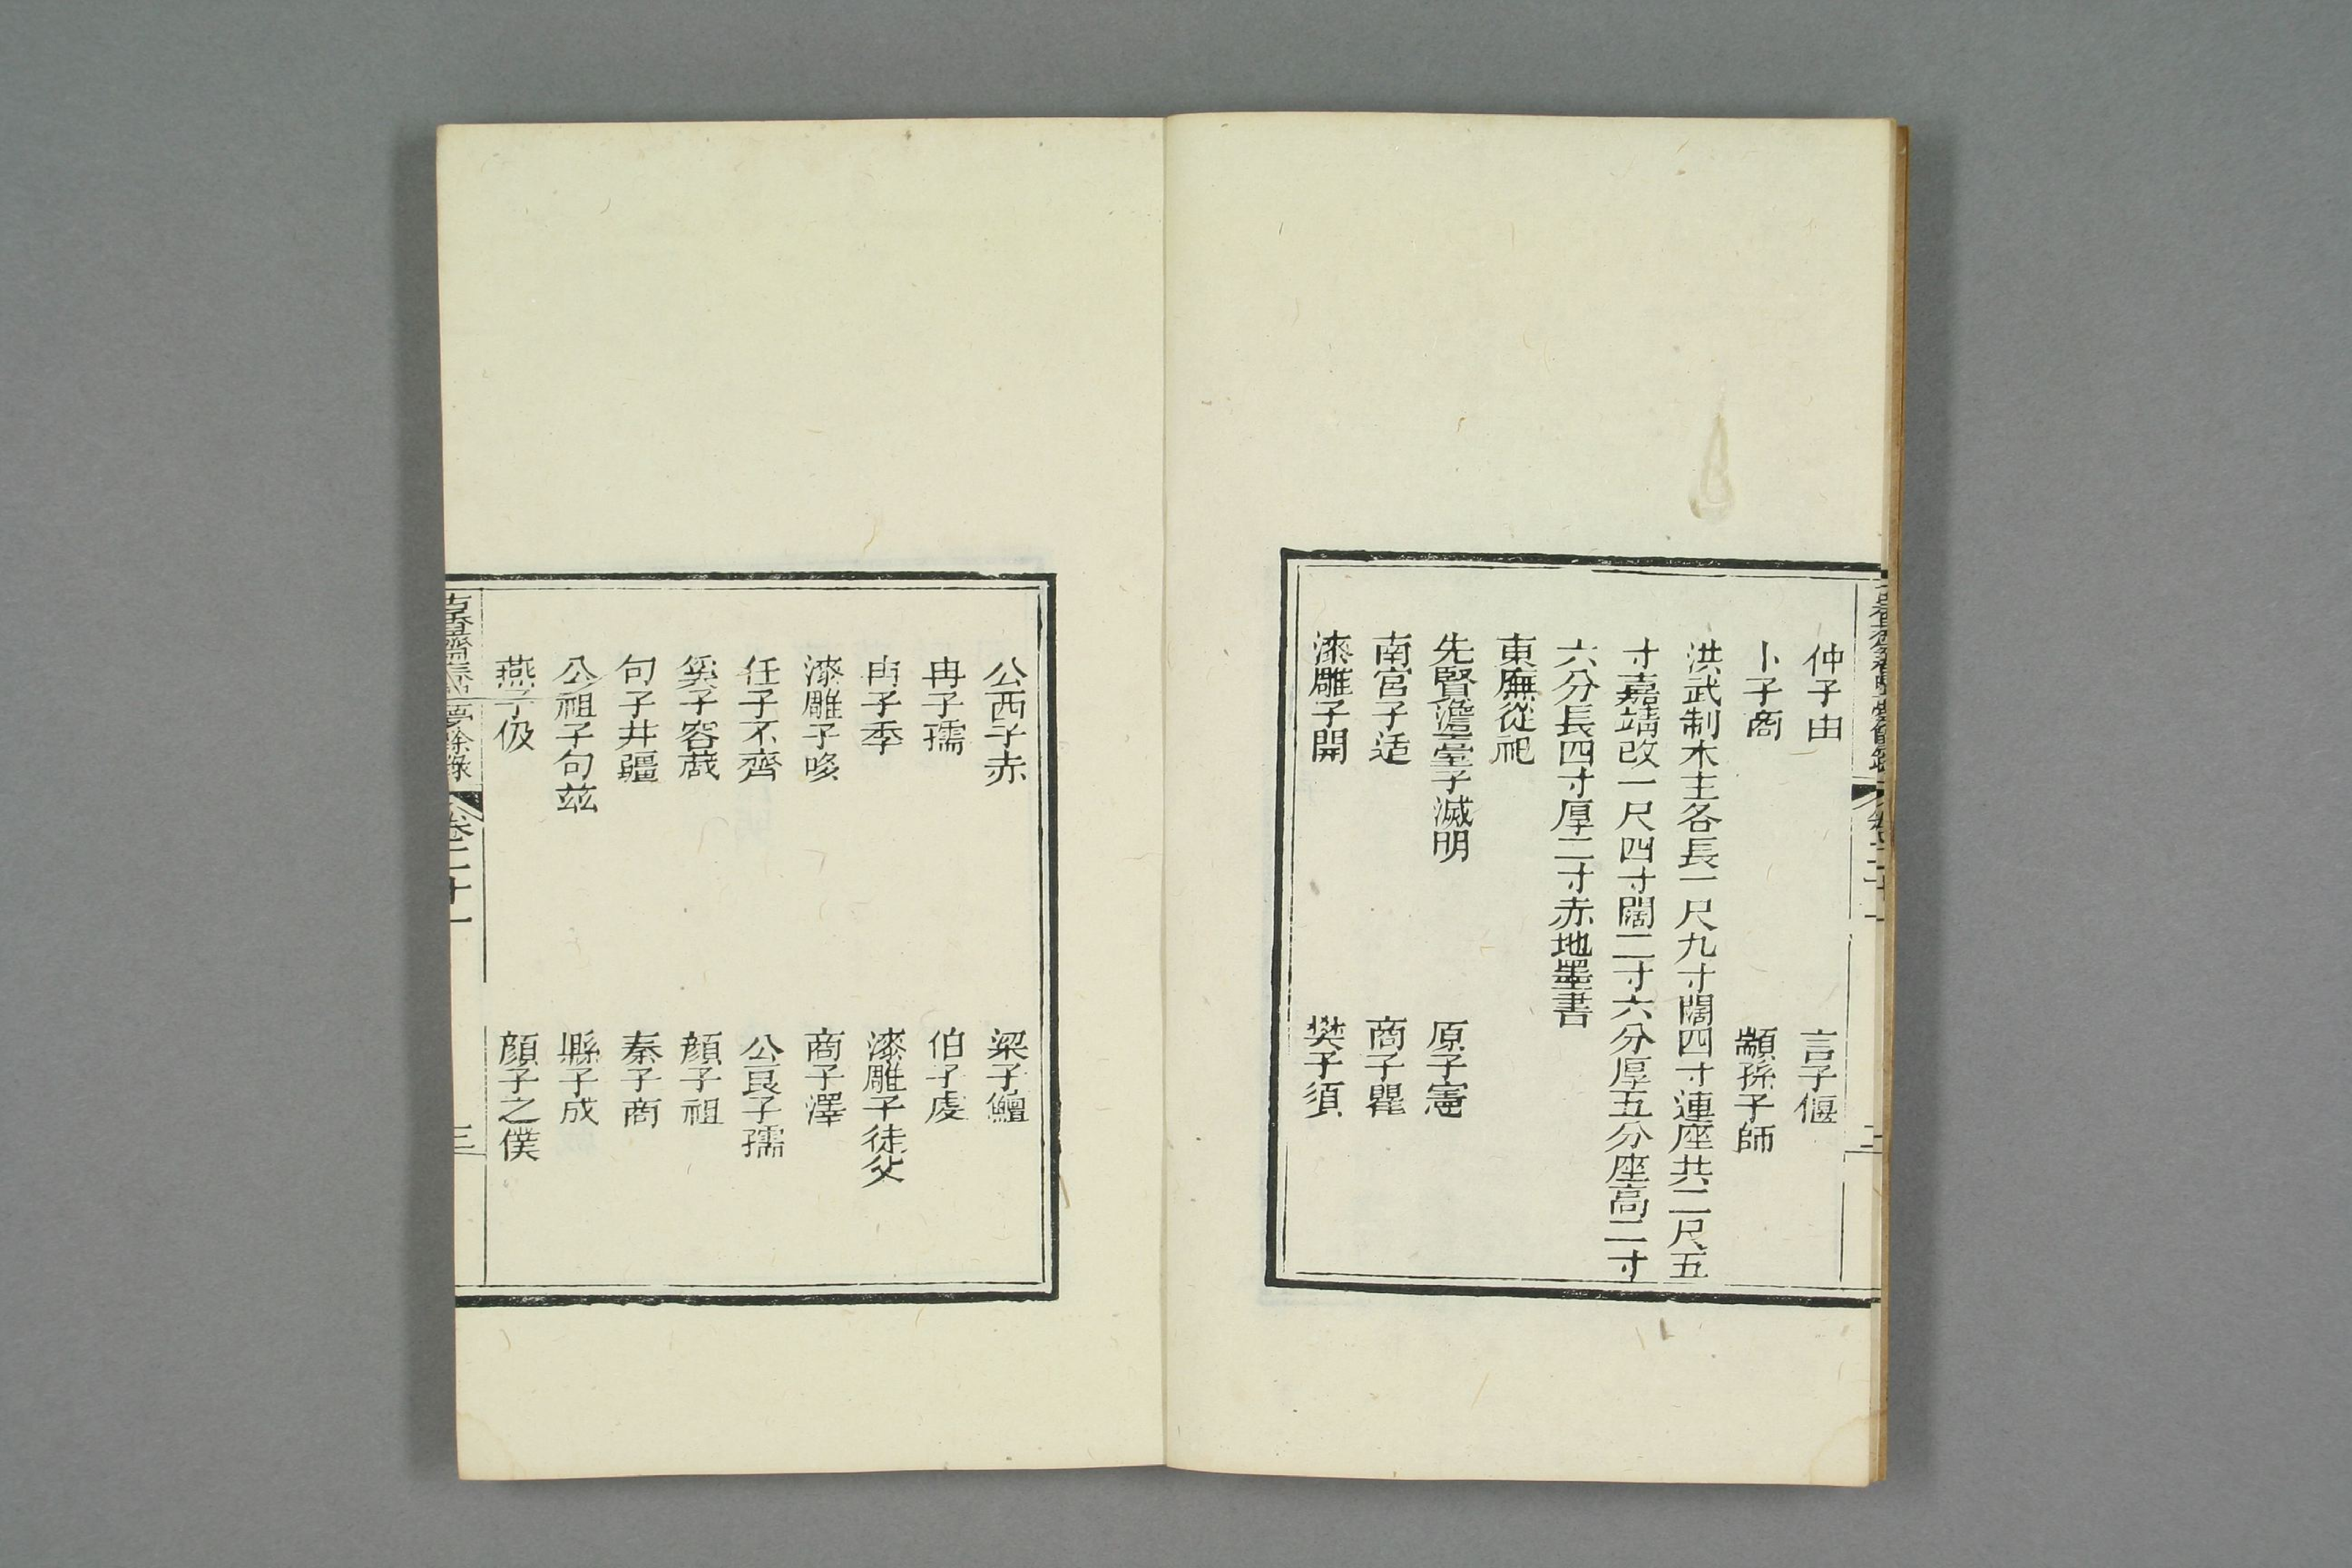 仲子由　言子偃
卜子商　顓孫子師
洪武制木主各長一尺九寸闊四寸連座共二尺五
寸嘉靖改一尺四寸闊二寸六分厚五分座高二寸
六分長四寸厚二寸赤地墨書
東廡從祀
先賢澹臺子滅明　原子憲
南宮子适　商子瞿
漆雕子開　樊子須
公西子赤　梁子鱣
冉子孺　伯子虔
冉子季　漆雕子徒父
漆雕子哆　商子澤
任子不齊　公良子孺
奚子容蒧　顏子祖
句子井疆　秦子商
公祖子句茲　縣子成
燕子伋　顏子之僕
古香齋春明夢餘錄　卷二十一　三